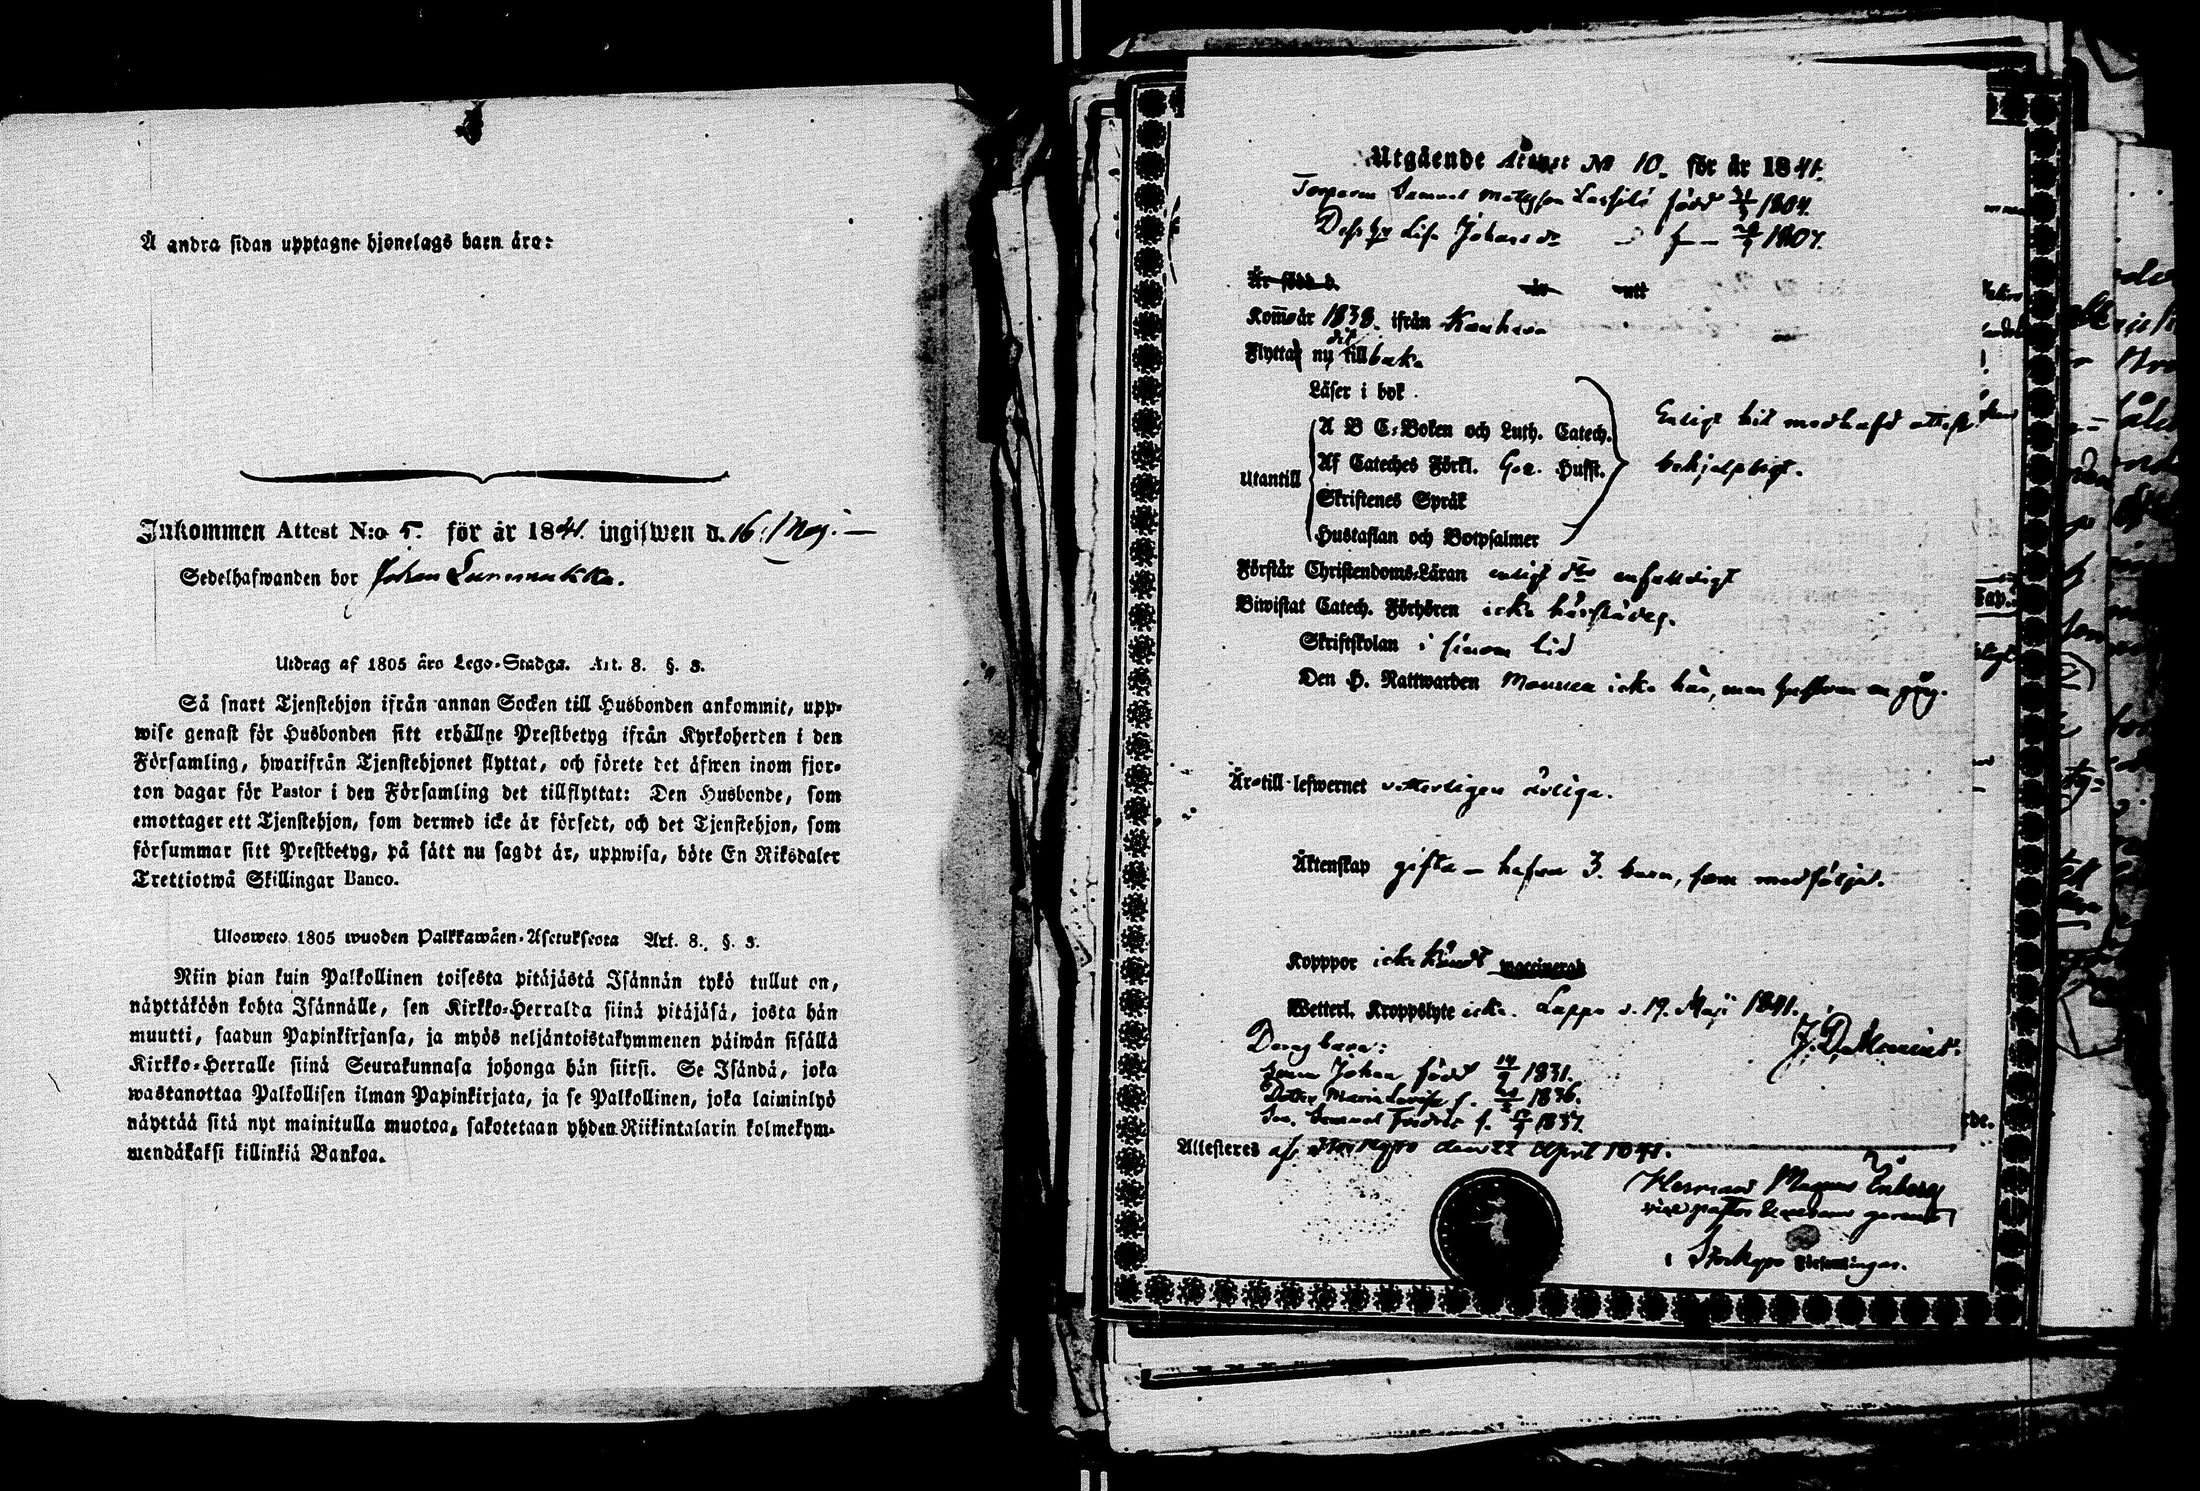 Å andra sidan upptagne hjonelags barn äro:
Inkommen Attest N:o 5. för år 1841. ingifwen d. 16 Maj. —
Sedelhafwanden bor Johan
Utdrag af 1805 års Lego-Stadga. Art. 8. §. 3.
Så snart Tjenstehjon ifrån annan Socken till Husbonden ankommit, upp-
wise genast för Husbonden sitt erhållne Prestbetyg ifrån Kyrkoherden i den
Församling, hwarifrån Tjenstehjonet flyttat, och förete det äfwen inom fjor-
ton dagar för Pastor i den Församling det tillflyttat: Den Husbonde, som
emottager ett Tjenstehjon, som dermed icke är försedt, och det Tjenstehjon, som
försummar sitt Prestbetyg, på sätt nu sagdt är, uppwisa, böte En Riksdaler
Trettiotwå Skillingar Banco.
Ulosweto 1805 wuoden Palkkawäen-Asetuksesta Art. 8. §. 3.
Niin pian kuin Palkollinen toisesta pitäjästä Isännän tykö tullut on,
näyttäköön kohta Isännälle, sen Kirkko-Herralda siinä pitäjäsä, josta hän
muutti, saadun Papinkirjansa, ja myös neljäntoistakymmenen päiwän sisällä
Kirkko-Herralle siinä Seurakunnasa johonga hän siirsi. Se Isändä, joka
wastanottaa Palkollisen ilman Papinkirjata, ja se Palkollinen, joka laiminlyö
näyttää sitä nyt mainitulla muotoa, sakotetaan yhden Riikintalarin kolmekym-
mendäkaksi killinkiä Bankoa.
Utgående Attest No 10. för år 1841.
Torparen Samuel Mattsson född 1804.
Dess hu Lisa Johansdr f — 1807.
Är född d. år uti
Kom år 1838. ifrån Kauhava
Flyttar nu dit tillbaka
Läser i bok
A B C-Boken och Luth. Catech.
Enligt hit medhafd attest
Utantill
Af Cateches Förkl. Gez. Hufst.
behjelpligt.
Skriftenes Språk
Hustaflan och Botpsalmer
Förstår Christendoms-Läran enligt dito enfaldigt
Biwistat Catech. Förhören icke härstädes.
Skriftskolan i sinom tid
Den H. Nattwarden Mannen icke här, men hustrun en gång.
Är till lefwernet vitterligen ärliga.
Äktenskap gifta — hafva 3. barn, som medfölja.
Kopppor icke händt vaccinerad
Wetterl. Kroppslyte icke. Lappo d. 19. Maji 1841.
Deras barn:
Sonen Johan, född 1831.
Dotter Maria Lovisa f. 1836.
Son Samuel Fredric f. 1837.
Attesteres af Storkyro den 22 April 1841.
Herman Magnus Enberg
vice pastor
i Storkyro Församlingar.